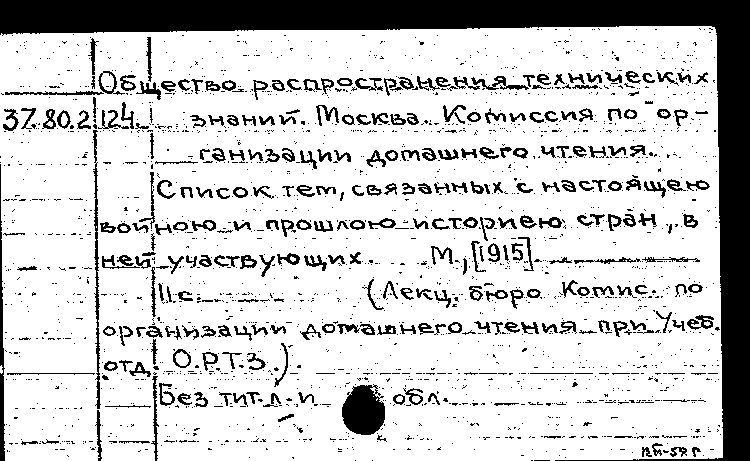 Общество распространения технических
37.80.2 124. знаний. Москва. Комиссия по ор-
ганизации домашнего чтения.
Список тем, связанных с настоящею
войною и прошлою историею стран, в
ней участвующих. М., [1915].
11 с. (Лекц. бюро Комис. по
организации домашнего чтения при Учеб.
отд. О.Р.Т.З.).
Без тит. л. и обл.